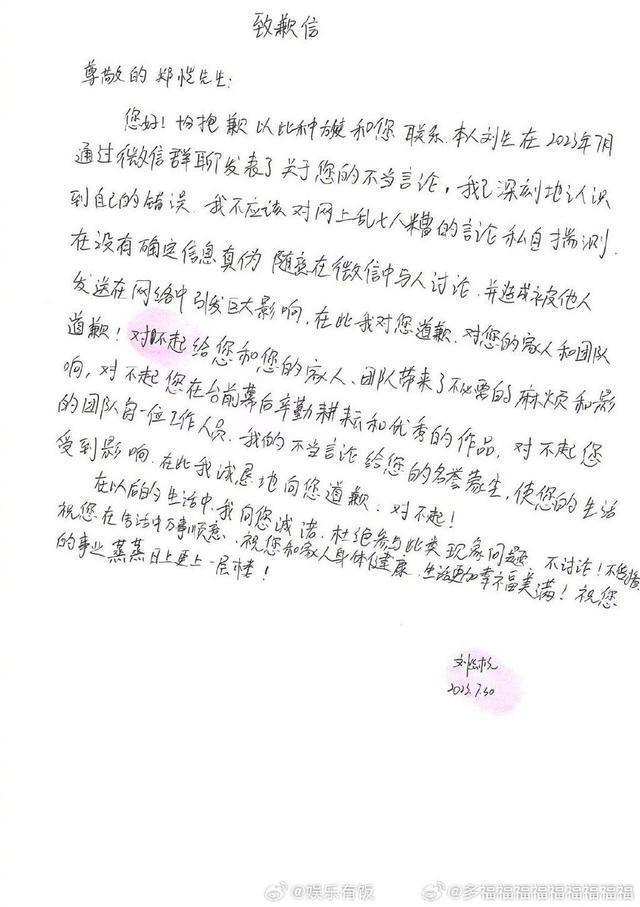 致歉信
尊敬的郑恺先生:
您好!怕抱歉以此种方式和您联系.本人刘在2023年7月
通过微信群聊发表了关于您的不当言论,我已深刻地认识
到自己的错误.我不应该对网上乱七八糟的言论私自揣测.
在没有确定信息真伪随意在微信中与人讨论.并造成被他人
发送在网络中引发巨大影响.在此我对您道歉.对您的家人和团队
道歉!对不起给您和您的家人、团队带来了不必要的麻烦和影
响,对不起您在台前幕后辛勤耕耘和优秀的作品,对不起您
的团队每一位工作人员.我的不当言论给您的名誉蒙尘,使您的生活
受到影响.在此我诚恳地向您道歉.对不起!
在以后的生活中,我向您诚诺.杜绝参与此类现象问题 不讨论!
祝您在生活中万事顺意、祝您和家人身体健康.生活更加幸福美满!祝您
的事业蒸蒸日上更上一层楼!
刘
2023.7.30
@娱乐有饭
@多福福福福福福福福福福